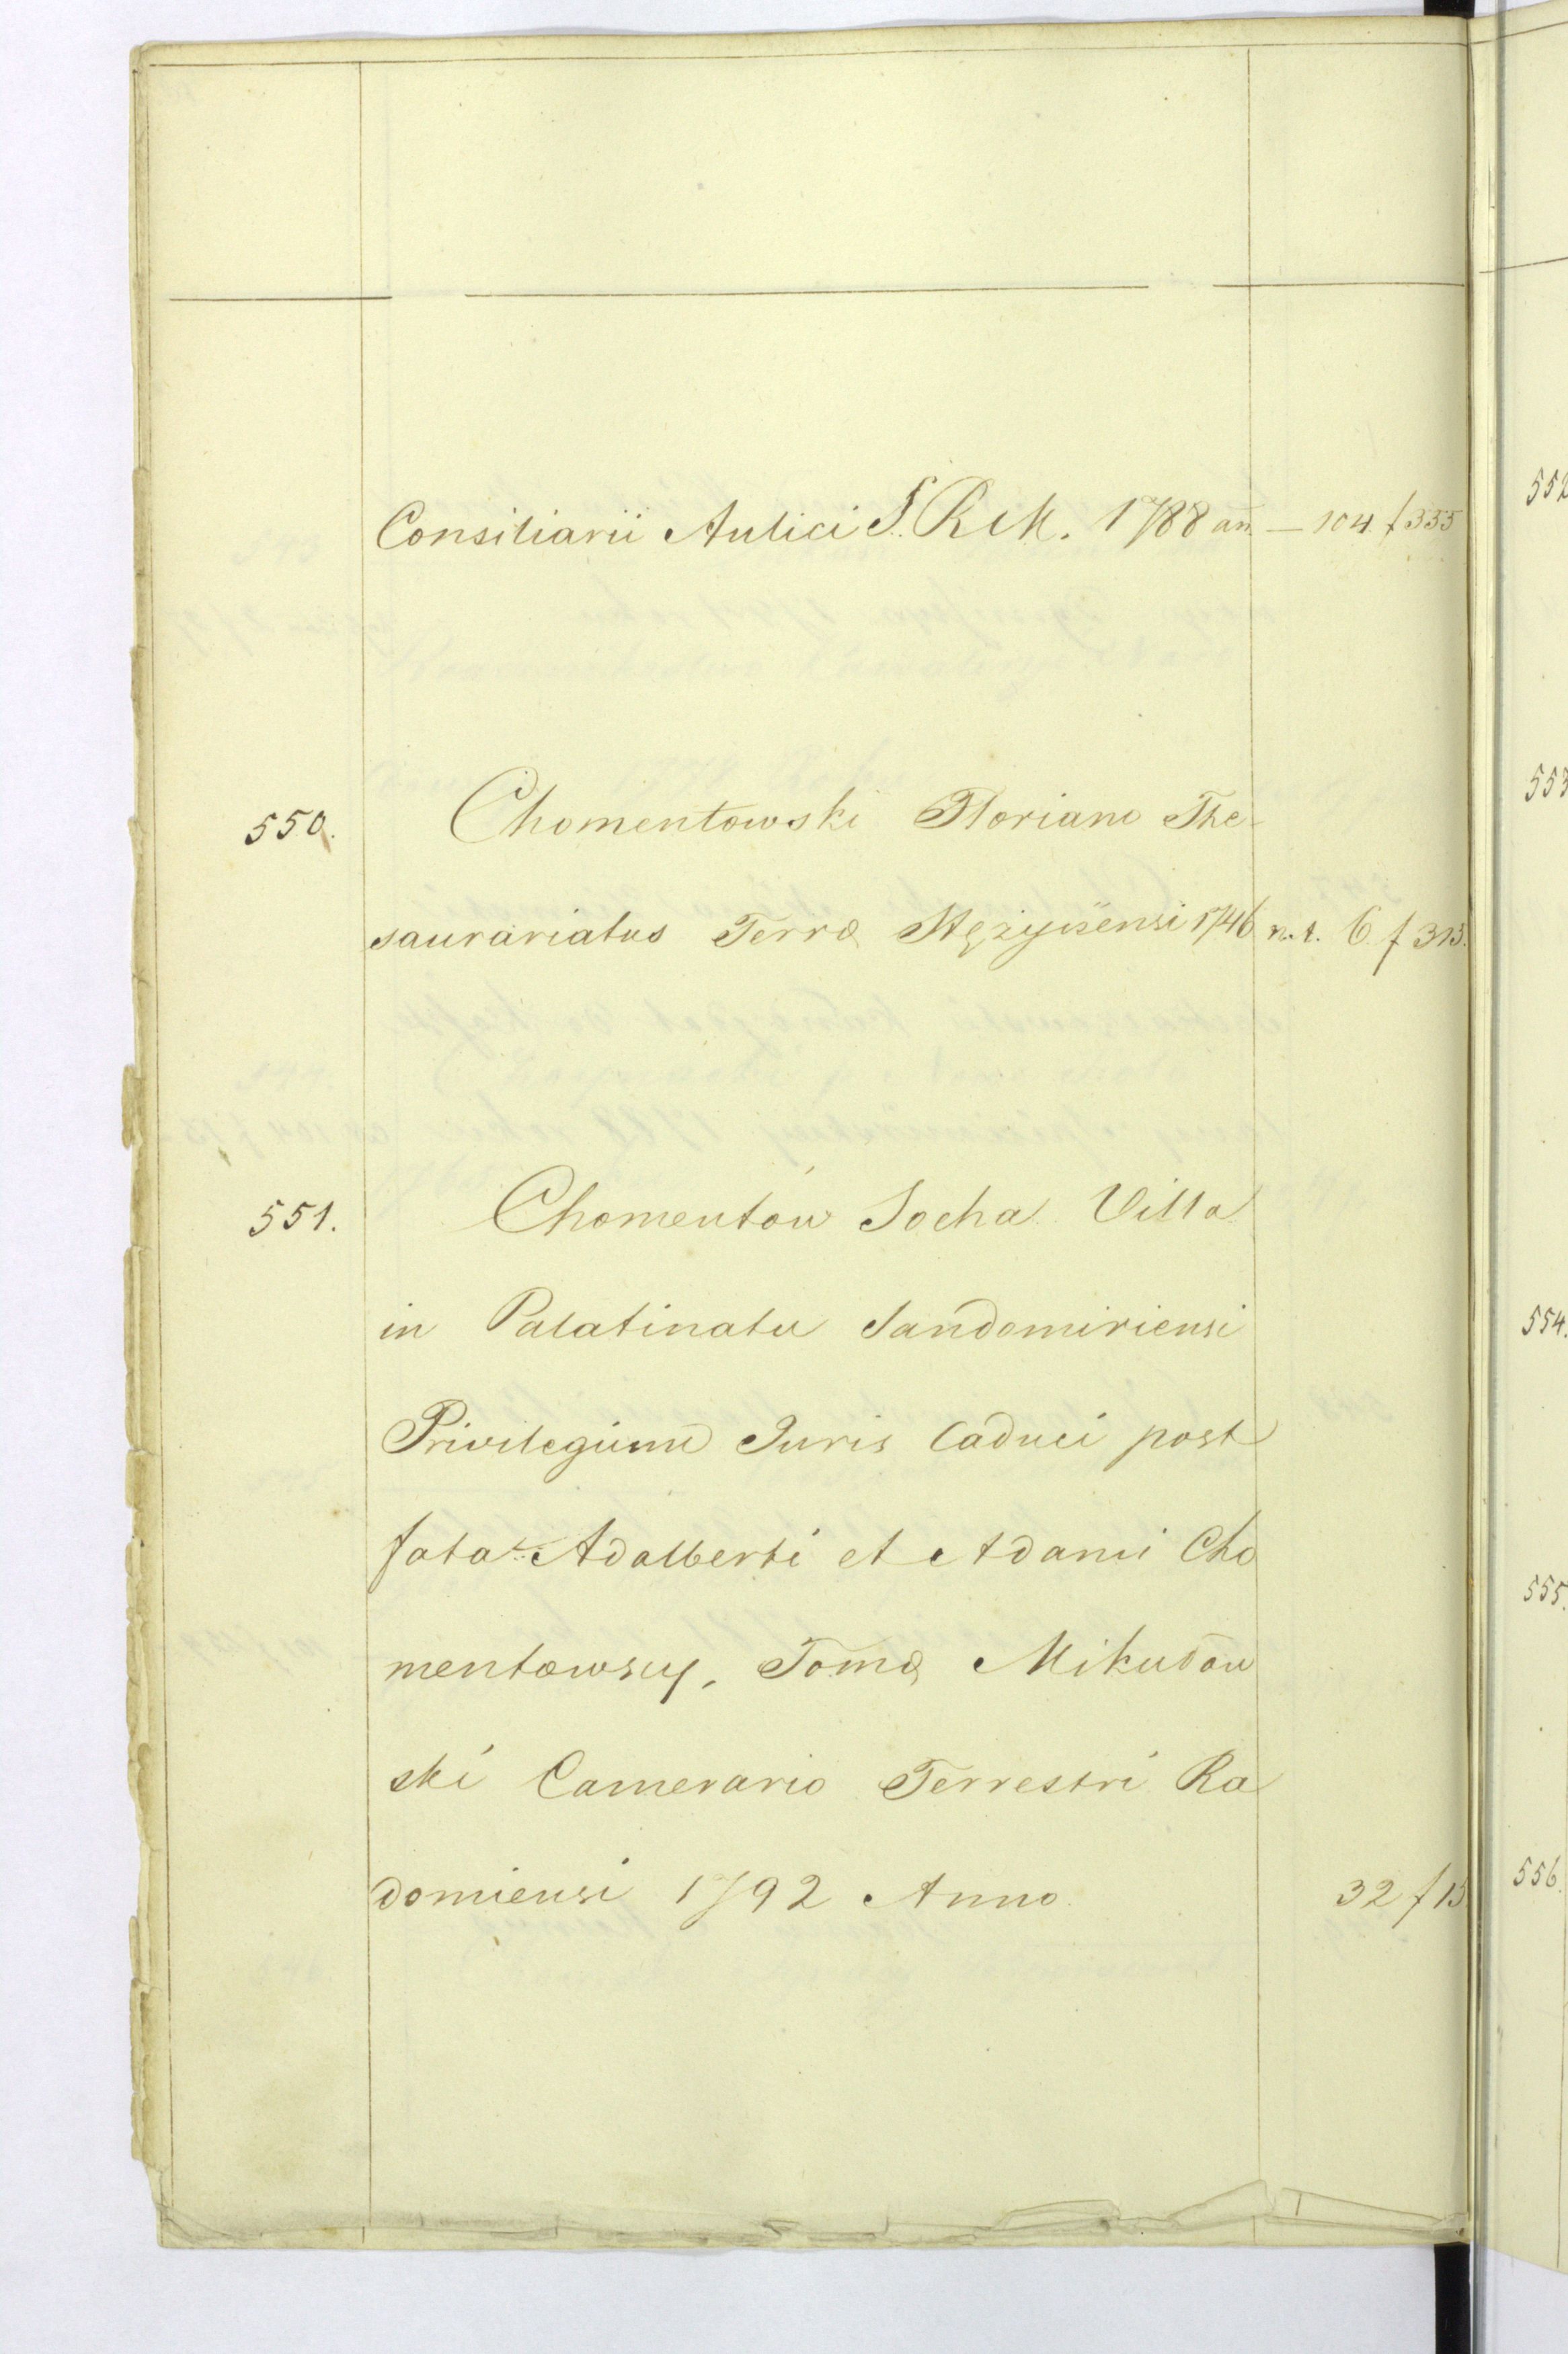 Consiliarii Aulici S. R. M. 1788 añ. — 104 f 335
550. Chomentowski Floriano The-
saurariatus Terrę Stężycensi 1746 n. t. 6 f 313.
551. Chomentów Socha Villa
in Palatinatu Sandomiriensi
Privilegium Juris Caduci post
fata Adalberti et Adami Cho
mentowscy, Tomę Mikułow
ski Camerario Terrestri Ra
domiensi 1792 Anno. 32 f 15
552
553
554.
555.
556.